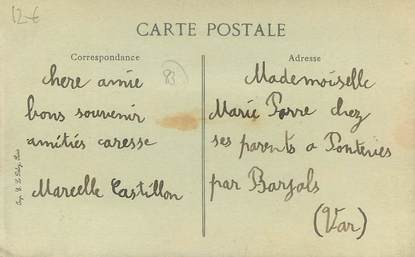 12 €
CARTE POSTALE
Correspondance
Adresse
chere amie
bons souvenir
amitiés caresse
Marcelle Castillon
83
Mademoiselle
Marie Porre chez
ses parents a Ponteves
par Barjols
(Var)